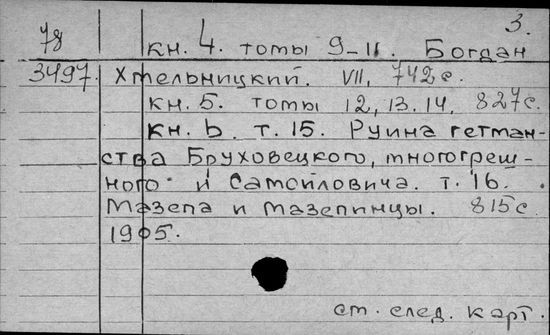 3.
78 кн. 4. томы 9-11. Богдан
3497. Хмельницкий. VII, 742 с.
кн. 5. томы 12, 13. 14, 827 с.
кн. Ь. т. 15. Руина гетман-
ства Бруховецкого, многогреш-
ного и Самойловича. т. 16.
Мазепа и мазепинцы. 815 с.
1905.
см. след. карт.